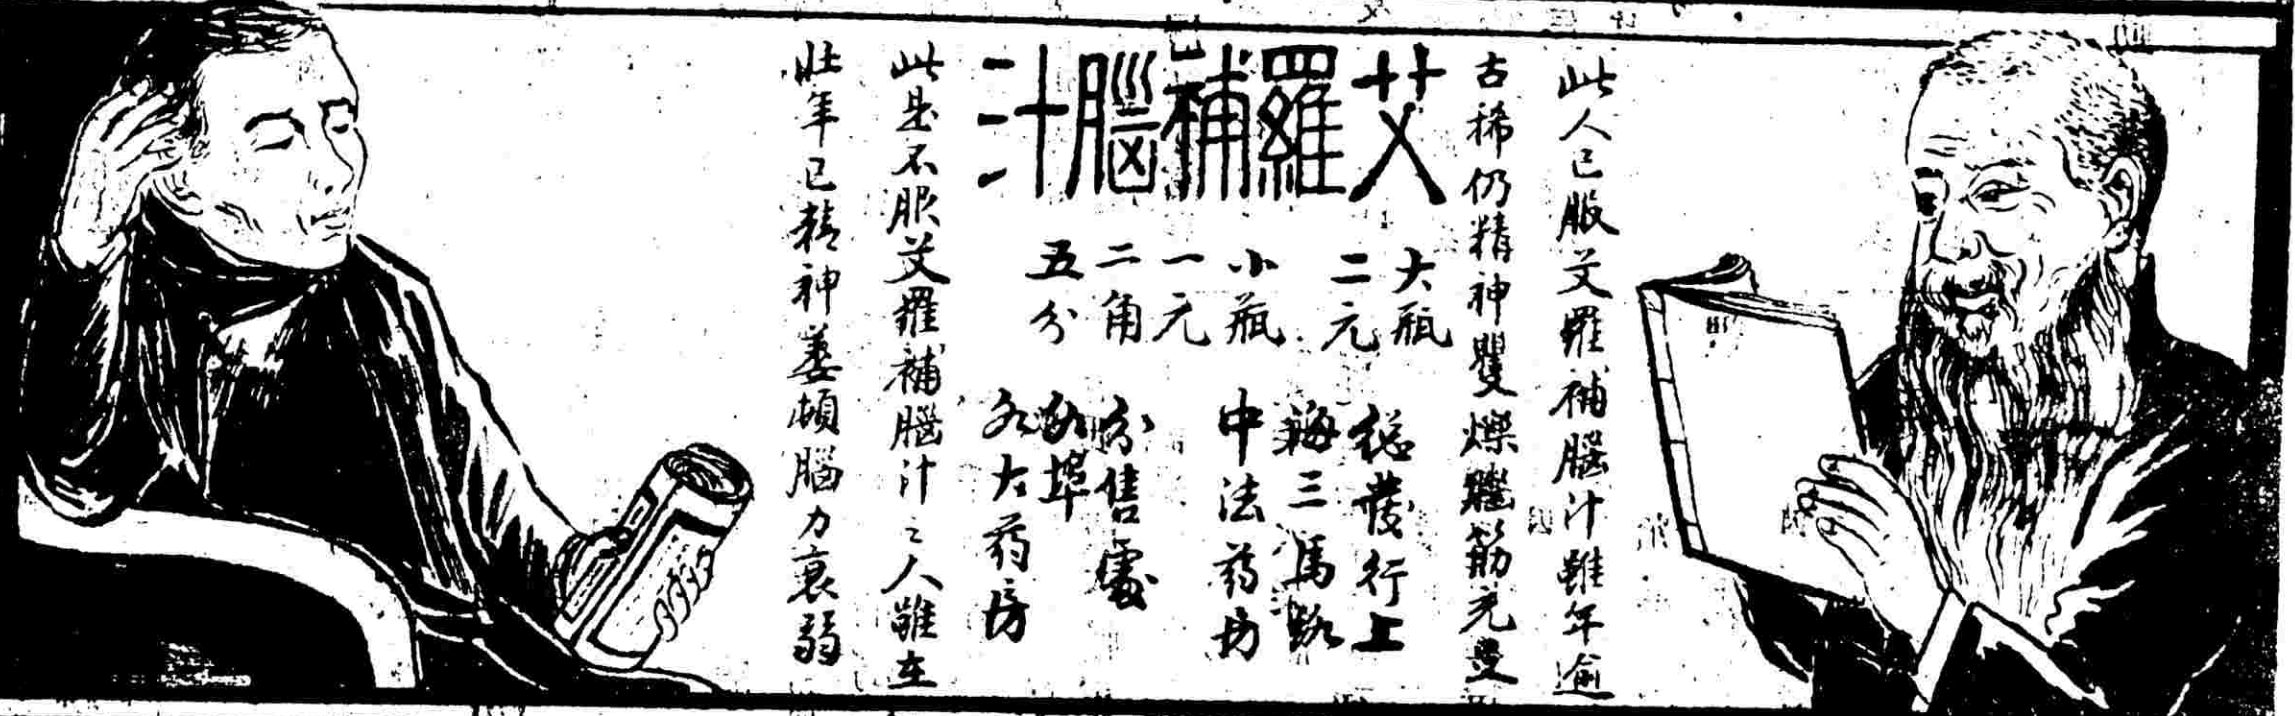 此人已服艾羅補腦汁雖年逾
古稀仍精神矍爍腦筋充足
艾羅補腦汁
大瓶
二元
小瓶
一元
二角
五分
総發行上
海三馬路
中法葯房
分售處
各埠
各大葯房
此是不服艾羅補腦汁之人雖在
壯年已精神萎頓腦力衰弱